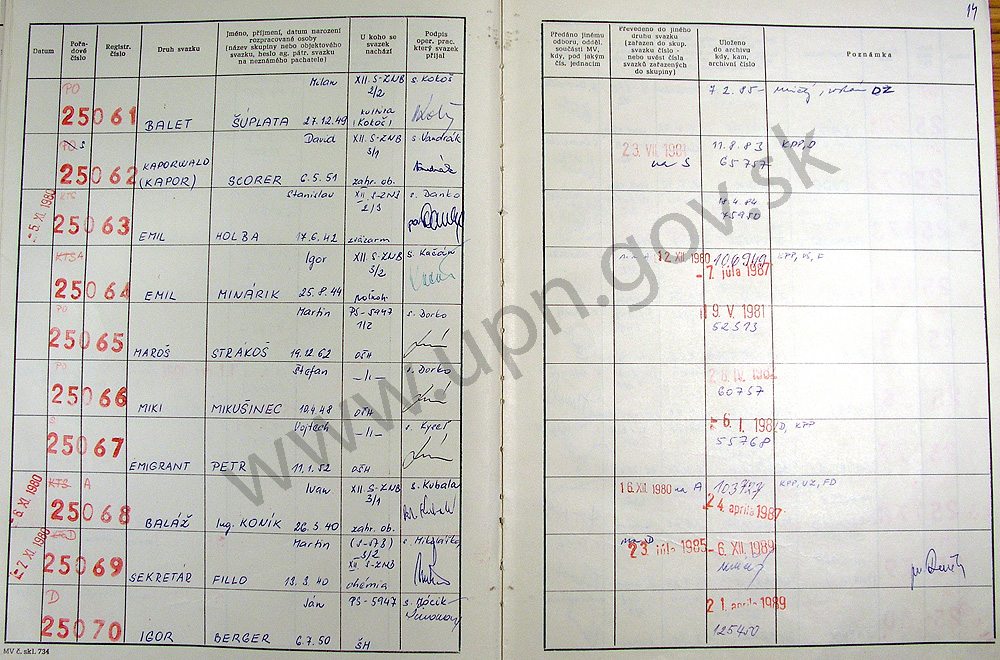 14
Datum
Pořa-
dové
číslo
Registr.
číslo
Druh svazku
Jméno, příjmení, datum narození
rozpracované osoby
(název skupiny nebo objektového
svazku, heslo ag. pátr. svazku
na neznámého pachatele)
U koho se
svazek
nachází
Podpis
oper. prac.
který svazek
přijal
Předáno jinému
odboru, odděl.
součásti MV,
kdy, pod jakým
čís. jednacím
Převedeno do jiného
druhu svazku
(zařazen do skup.
svazku číslo -
nebo uvést čísla
svazků zařazených
do skupiny)
Uloženo
do archivu
kdy, kam,
archivní číslo
Poznámka
PO
25061
BALET
Milan
ŠUPLATA 27.12.49
XII. S-ZNB
2/2
kultúra
(Kokoš)
s. Kokoš
7.2.85-
DZ
S
25062
KAPORWALD
(KAPOR)
David
SCORER 6.5.51
XII. S-ZNB
3/1
zahr. ob.
s. Vandrák
23. VII. 1981
na S
11.8.83
65757
KPP, D
-5. XI. 1980
25063
EMIL
Stanislav
HOLBA 17.6.42
XII. S-ZNB
2/3
zväzarm
s. Danko
75950
KTS A
25064
EMIL
Igor
MINÁRIK 25.8.44
XII. S-ZNB
3/2
12. XII. 1980
-7. júla 1987
PO
25065
MAROŠ
Martin
STRÁKOŠ 19.12.62
PS-5947
1/2
OŠH
s. Dorko
9. V. 1981
52513
PO
25066
MIKI
Štefan
MIKUŠINEC 10.4.48
-II-
OŠH
s. Dorko
60757
25067
EMIGRANT
Vojtech
PETR 11.1.52
-II-
OŠH
-6. I. 198
55768
D, KPP
-6. XI. 1980
KTS A
25068
BALÁŽ
Ivan
Ing. KONÍK 26.3.40
XII. S-ZNB
3/1
zahr. ob.
s. Kubala
16. XII. 1980 na A
103727
24. apríla 1987
KPP, VZ, FD
-2. XI. 1980
25069
SEKRETÁR
Martin
FILLO 13.3.40
3/2
XII. S-ZNB
chémia
na D
23. júla 1985
-6. XII. 1989
D
25070
IGOR
Ján
BERGER 6.7.50
PS-5947
ŠH
s. Mócik
21. apríla 1989
125450
MV č. skl. 734
www.upn.gov.sk